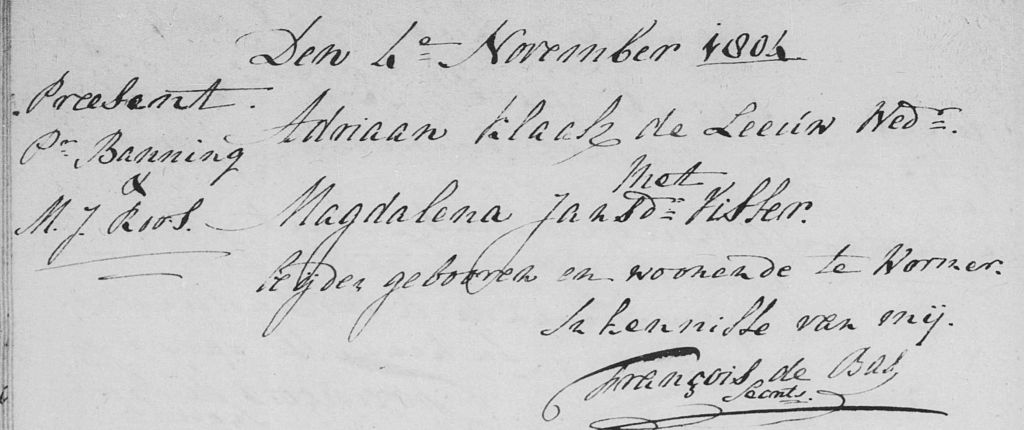 Den 4e November 1804
Preesent.
Pr Banning
&
M. J. Roos.
Adriaan Klaasz de Leeuw Wedr.
Met
Magdalena Jansdr Visser.
beijden gebooren en woonende te Wormer.
In kennisse van mij.
François de Bas
Secrets.